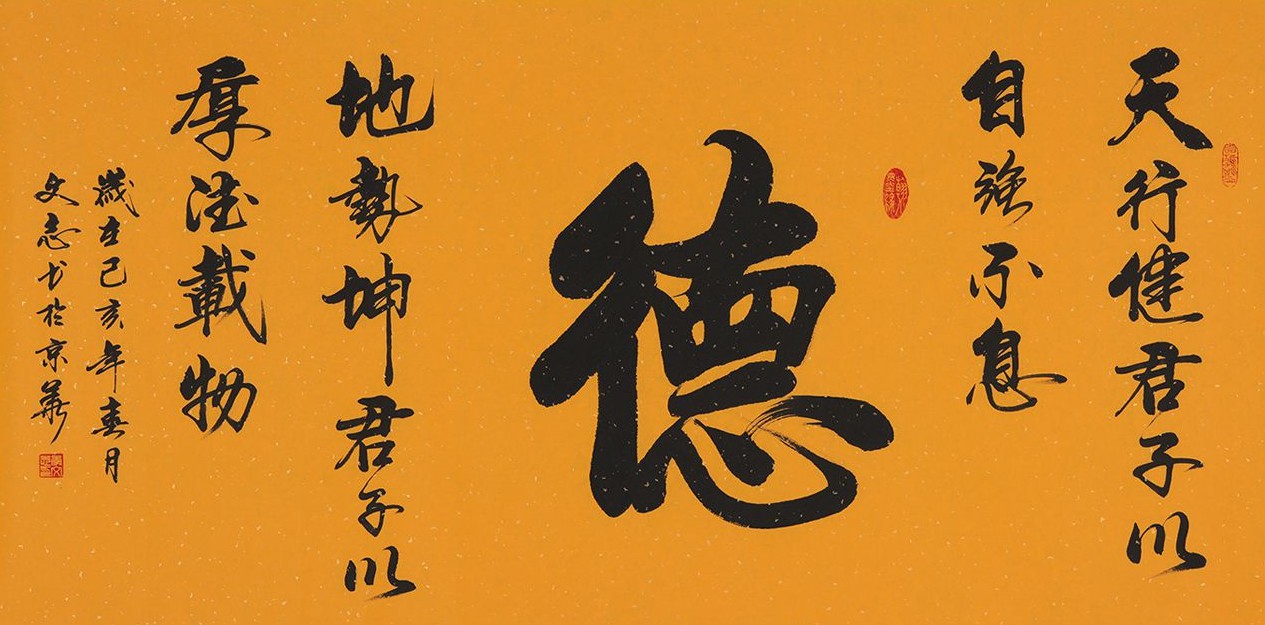 天行健君子以
自強不息
德
地勢坤君子以
厚德載物
歲在己亥年春月
文志书於京華